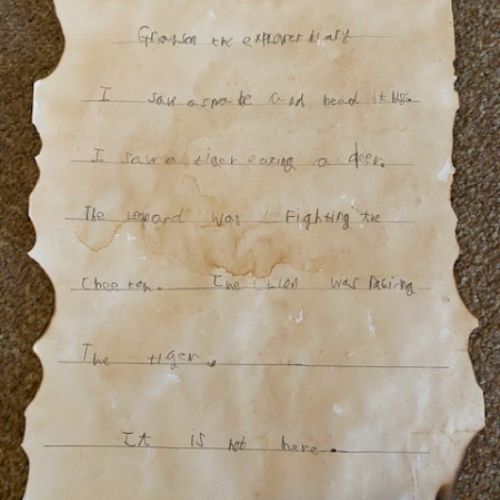 Grayson the explorer diary
I saw a snake and head it hiss.
I saw a tiger eating a deer.
The leopard was Fighting the
cheetah. The Lion was racing
The tiger.
It is not here.